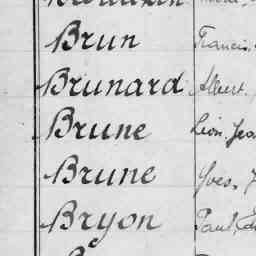 Brun Francis.
Brunard Albert.
Brune Léon, Jea
Brune Yves, J
Bryon Paul, Ed